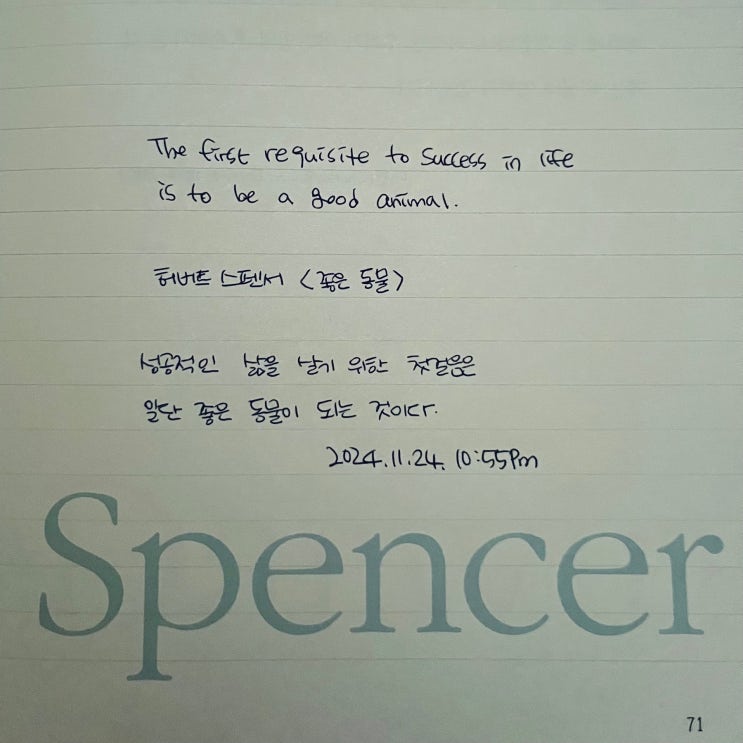 The first requisite to success in life
is to be a good animal.
허버트 스펜서 <좋은 동물>
성공적인 삶을 살기 위한 첫걸음은
일단 좋은 동물이 되는 것이다.
2024.11.24. 10:55pm
Spencer
71